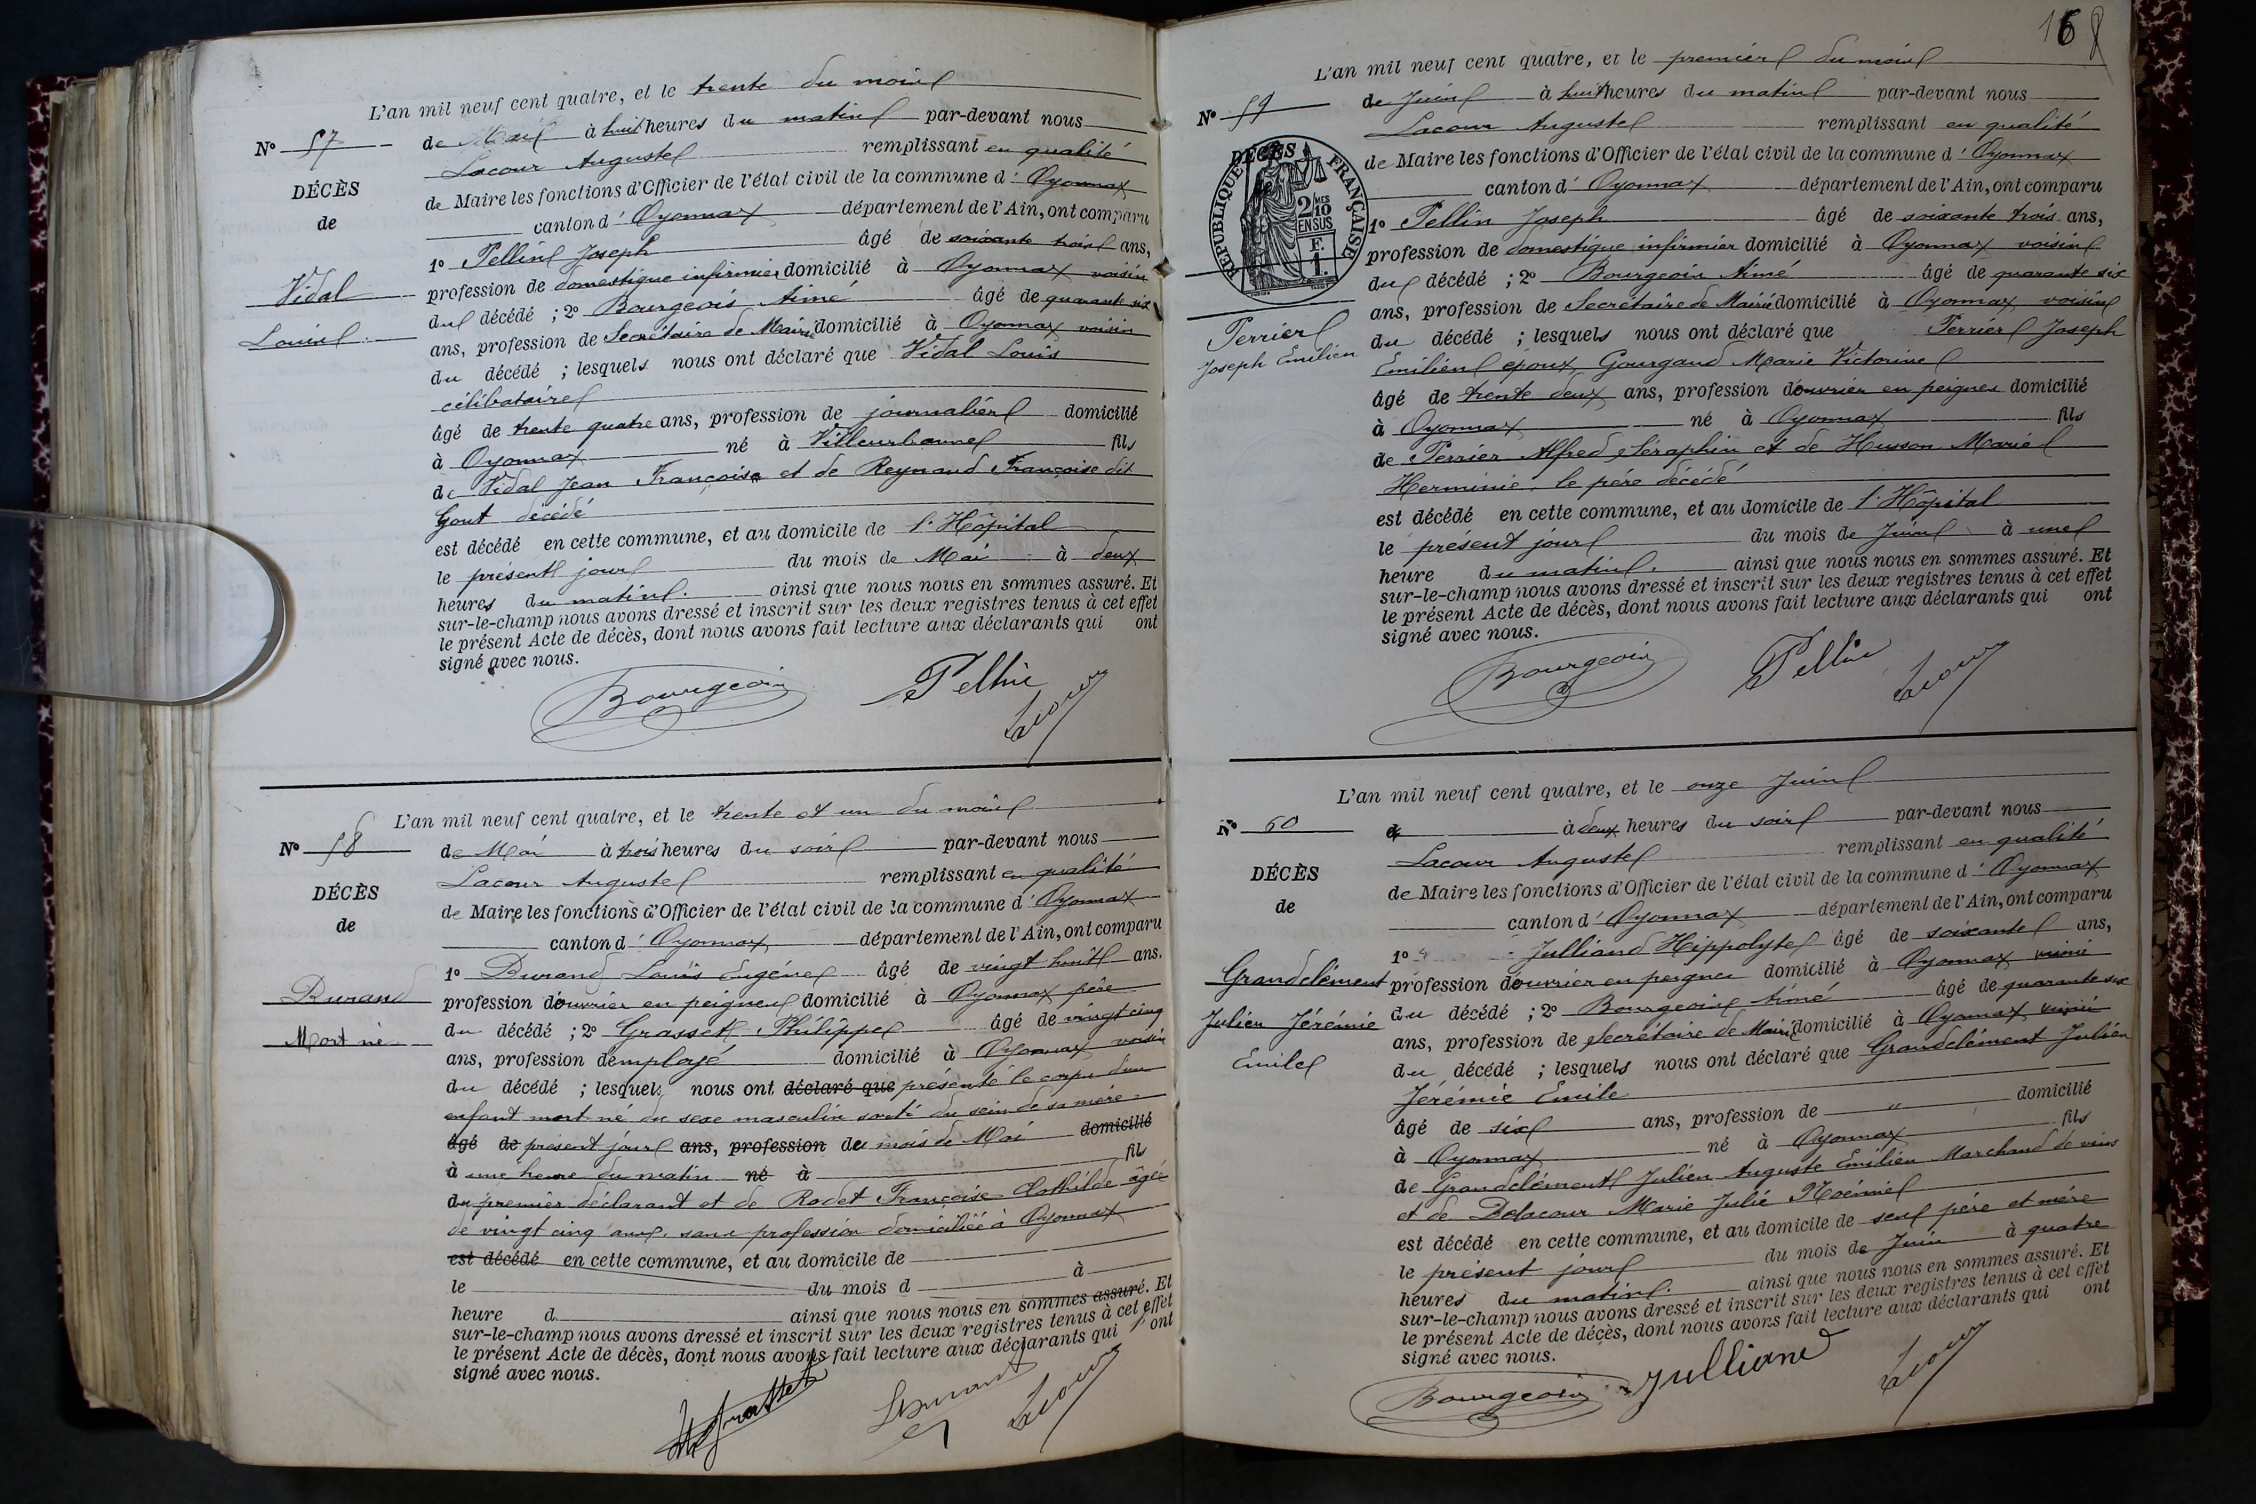 L'an mil neuf cent quatre, et le trente du mois
N° 57
de Mai à huit heures du matin par-devant nous
Lacour Auguste remplissant en qualité
DÉCÈS
de Maire les fonctions d'Officier de l'état civil de la commune d'Oyonnax
de
canton d'Oyonnax département de l'Ain, ont comparu
1° Pellin Joseph âgé de soixante trois ans,
profession de domestique infirmier domicilié à Oyonnax voisin
Vidal
du décédé ; 2° Bourgeois Aimé âgé de quarante six
Louis
ans, profession de Secrétaire de Mairie domicilié à Oyonnax voisin
du décédé ; lesquels nous ont déclaré que Vidal Louis
célibataire
âgé de trente quatre ans, profession de journalier domicilié
à Oyonnax né à Villeurbanne fils
de Vidal Jean Françoise et de Reynaud Françoise dit
Gout décédé
est décédé en cette commune, et au domicile de l'Hôpital
le présent jour du mois de Mai à deux
heures du matin. ainsi que nous nous en sommes assuré. Et
sur-le-champ nous avons dressé et inscrit sur les deux registres tenus à cet effet
le présent Acte de décès, dont nous avons fait lecture aux déclarants qui ont
signé avec nous.
Bourgeois Pellin Lacour
L'an mil neuf cent quatre, et le trente et un du mois
N° 58
de Mai à trois heures du soir par-devant nous
Lacour Auguste remplissant en qualité
DÉCÈS
de Maire les fonctions d'Officier de l'état civil de la commune d'Oyonnax
de
canton d'Oyonnax département de l'Ain, ont comparu
1° Durand Louis Eugène âgé de vingt huit ans.
Durand
profession d'ouvrier en peignes domicilié à Oyonnax père
du décédé ; 2° Grasset Philippe âgé de vingt cinq
Mort né
ans, profession d'employé domicilié à Oyonnax voisin
du décédé ; lesquels nous ont déclaré que présenté le corps d'un
enfant mort né du sexe masculin sorti du sein de sa mère
âgé de présent jour ans, profession du mois de Mai domicilié
à une heure du matin né à fils
du premier déclarant et de Rodet Françoise Clothilde âgée
de vingt cinq ans, sans profession domiciliée à Oyonnax
est décédé en cette commune, et au domicile de
le du mois d à
heure d ainsi que nous nous en sommes assuré. Et
sur-le-champ nous avons dressé et inscrit sur les deux registres tenus à cet effet
le présent Acte de décès, dont nous avons fait lecture aux déclarants qui ont
signé avec nous.
Grasset Durand Lacour
168
L'an mil neuf cent quatre, et le premier du mois
N° 59
de Juin à huit heures du matin par-devant nous
Lacour Auguste remplissant en qualité
DÉCÈS
de Maire les fonctions d'Officier de l'état civil de la commune d'Oyonnax
canton d'Oyonnax département de l'Ain, ont comparu
RÉPUBLIQUE FRANÇAISE
2 MES 10 EN SUS
F. 1.
1° Pellin Joseph âgé de soixante trois ans,
profession de domestique infirmier domicilié à Oyonnax voisin
du décédé ; 2° Bourgeois Aimé âgé de quarante six
ans, profession de Secrétaire de Mairie domicilié à Oyonnax voisin
Perrier
Joseph Emilien
du décédé ; lesquels nous ont déclaré que Perrier Joseph
Emilien époux Gourgaud Marie Victorine
âgé de trente deux ans, profession d'ouvrier en peignes domicilié
à Oyonnax né à Oyonnax fils
de Perrier Alfred Séraphin et de Husson Marie
Herminie, le père décédé
est décédé en cette commune, et au domicile de l'Hôpital
le présent jour du mois de Juin à une
heure du matin. ainsi que nous nous en sommes assuré. Et
sur-le-champ nous avons dressé et inscrit sur les deux registres tenus à cet effet
le présent Acte de décès, dont nous avons fait lecture aux déclarants qui ont
signé avec nous.
Bourgeois Pellin Lacour
L'an mil neuf cent quatre, et le onze Juin
N° 60
d à deux heures du soir par-devant nous
Lacour Auguste remplissant en qualité
DÉCÈS
de Maire les fonctions d'Officier de l'état civil de la commune d'Oyonnax
de
canton d'Oyonnax département de l'Ain, ont comparu
1° Julliand Hippolyte âgé de soixante ans,
Grandclément
profession d'ouvrier en peignes domicilié à Oyonnax voisin
Julien Jérémie
du décédé ; 2° Bourgeois Aimé âgé de quarante six
ans, profession de Secrétaire de Mairie domicilié à Oyonnax voisin
Emile
du décédé ; lesquels nous ont déclaré que Grandclément Julien
Jérémie Emile
âgé de six ans, profession de " domicilié
à Oyonnax né à Oyonnax fils
de Grandclément Julien Auguste Emilien Marchand de vins
et de Delacour Marie Julie Noémie
est décédé en cette commune, et au domicile de ses père et mère
le présent jour du mois de Juin à quatre
heures du matin. ainsi que nous nous en sommes assuré. Et
sur-le-champ nous avons dressé et inscrit sur les deux registres tenus à cet effet
le présent Acte de décès, dont nous avons fait lecture aux déclarants qui ont
signé avec nous.
Bourgeois Julliand Lacour